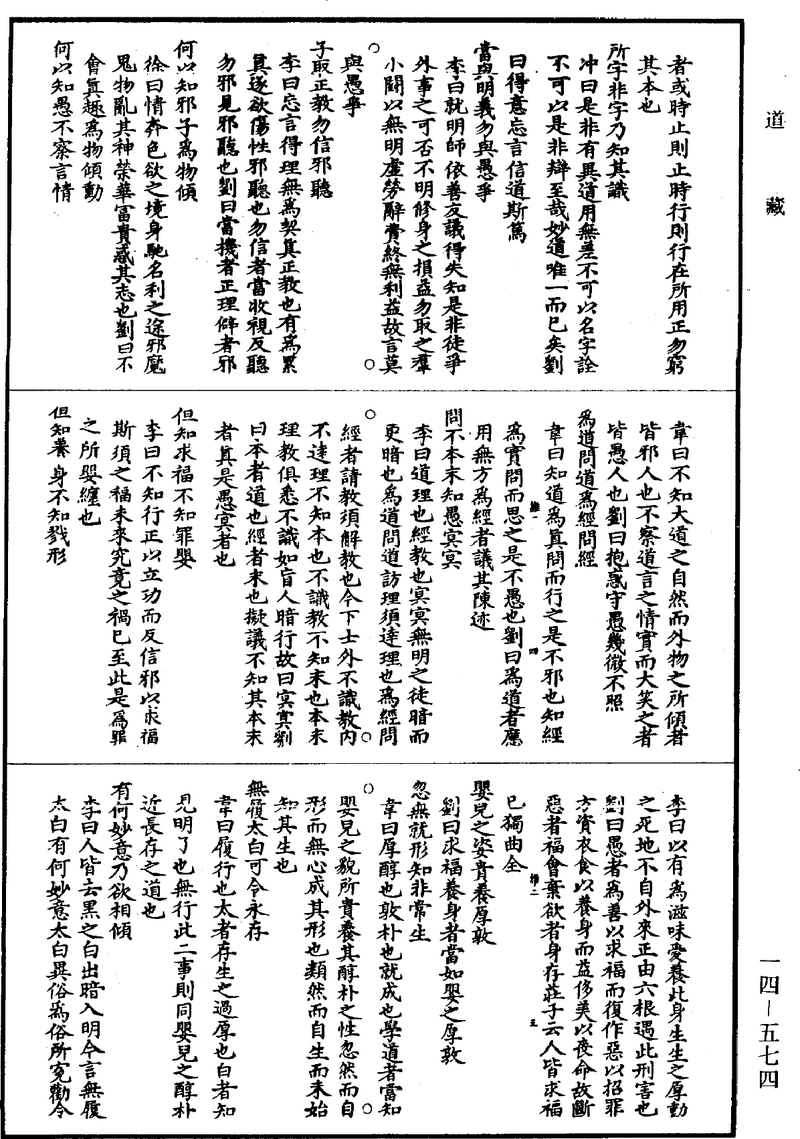 道藏
者或時止則止時行則行在所用正勿窮
其本也
所字非字乃知其識
沖曰是非有異道用無差不可以名字詮
不可以是非辯至哉妙道唯一而已矣劉
曰得意忘言信道斯篤
當與明義勿與愚爭
李曰就明師依善友議得失知是非徒爭
外事之可否不明修身之損益勿取之羣
小鬪以無明虛勞辭費終無利益故言莫
與愚爭
子取正教勿信邪聽
李曰忘言得理無為契真正教也有為累
真逐欲傷性邪聽也勿信者當收視反聽
勿邪見邪聽也劉曰當機者正理僻者邪
何以知邪子為物傾
徐曰情奔色欲之境身馳名利之途邪魔
鬼物亂其神榮華富貴惑其志也劉曰不
會真趣為物傾動
何以知愚不察言情
韋曰不知大道之自然而外物之所傾者
皆邪人也不察道言之情實而大笑之者
皆愚人也劉曰抱惑守愚幾微不照
為道問道為經問經
韋曰知道為真問而行之是不邪也知經
為實問而思之是不愚也劉曰為道者應
用無方為經者議其陳迹
問不本末知愚冥冥
李曰道理也經教也冥冥無明之徒暗而
更暗也為道問道訪理須達理也為經問
經者請教須解教也今下士外不識教內
不達理不知本也不識教不知末也本末
理教俱悉不識如盲人暗行故曰冥冥劉
曰本者道也經者末也擬議不知其本末
者真是愚冥者也
但知求福不知罪嬰
李曰不知行正以立功而反信邪以求福
斯須之福未來究竟之禍已至此是為罪
之所嬰纏也
但知養身不知戮形
李曰以有為滋味愛養此身生生之厚動
之死地不自外來正由六根遇此刑害也
劉曰愚者為善以求福而復作惡以招罪
方資衣食以養身而益侈美以喪命故斷
惡者福會棄欲者身存莊子云人皆求福
已獨曲全
嬰兒之姿貴養厚敦
劉曰求福養身者當如嬰之厚敦
忽無就形知非常生
韋曰厚醇也敦朴也就成也學道者當知
嬰兒之貌所貴養其醇朴之性忽然而自
形而無心成其形也頹然而自生而未始
知其生也
無履太白可令永存
韋曰履行也太者存生之過厚也白者知
見明了也無行此二事則同嬰兒之醇朴
近長存之道也
有何妙意乃欲相傾
李曰人皆云黑之白出暗入明今言無履
太白有何妙意太白異俗為俗所冤勸令
一四—五七四